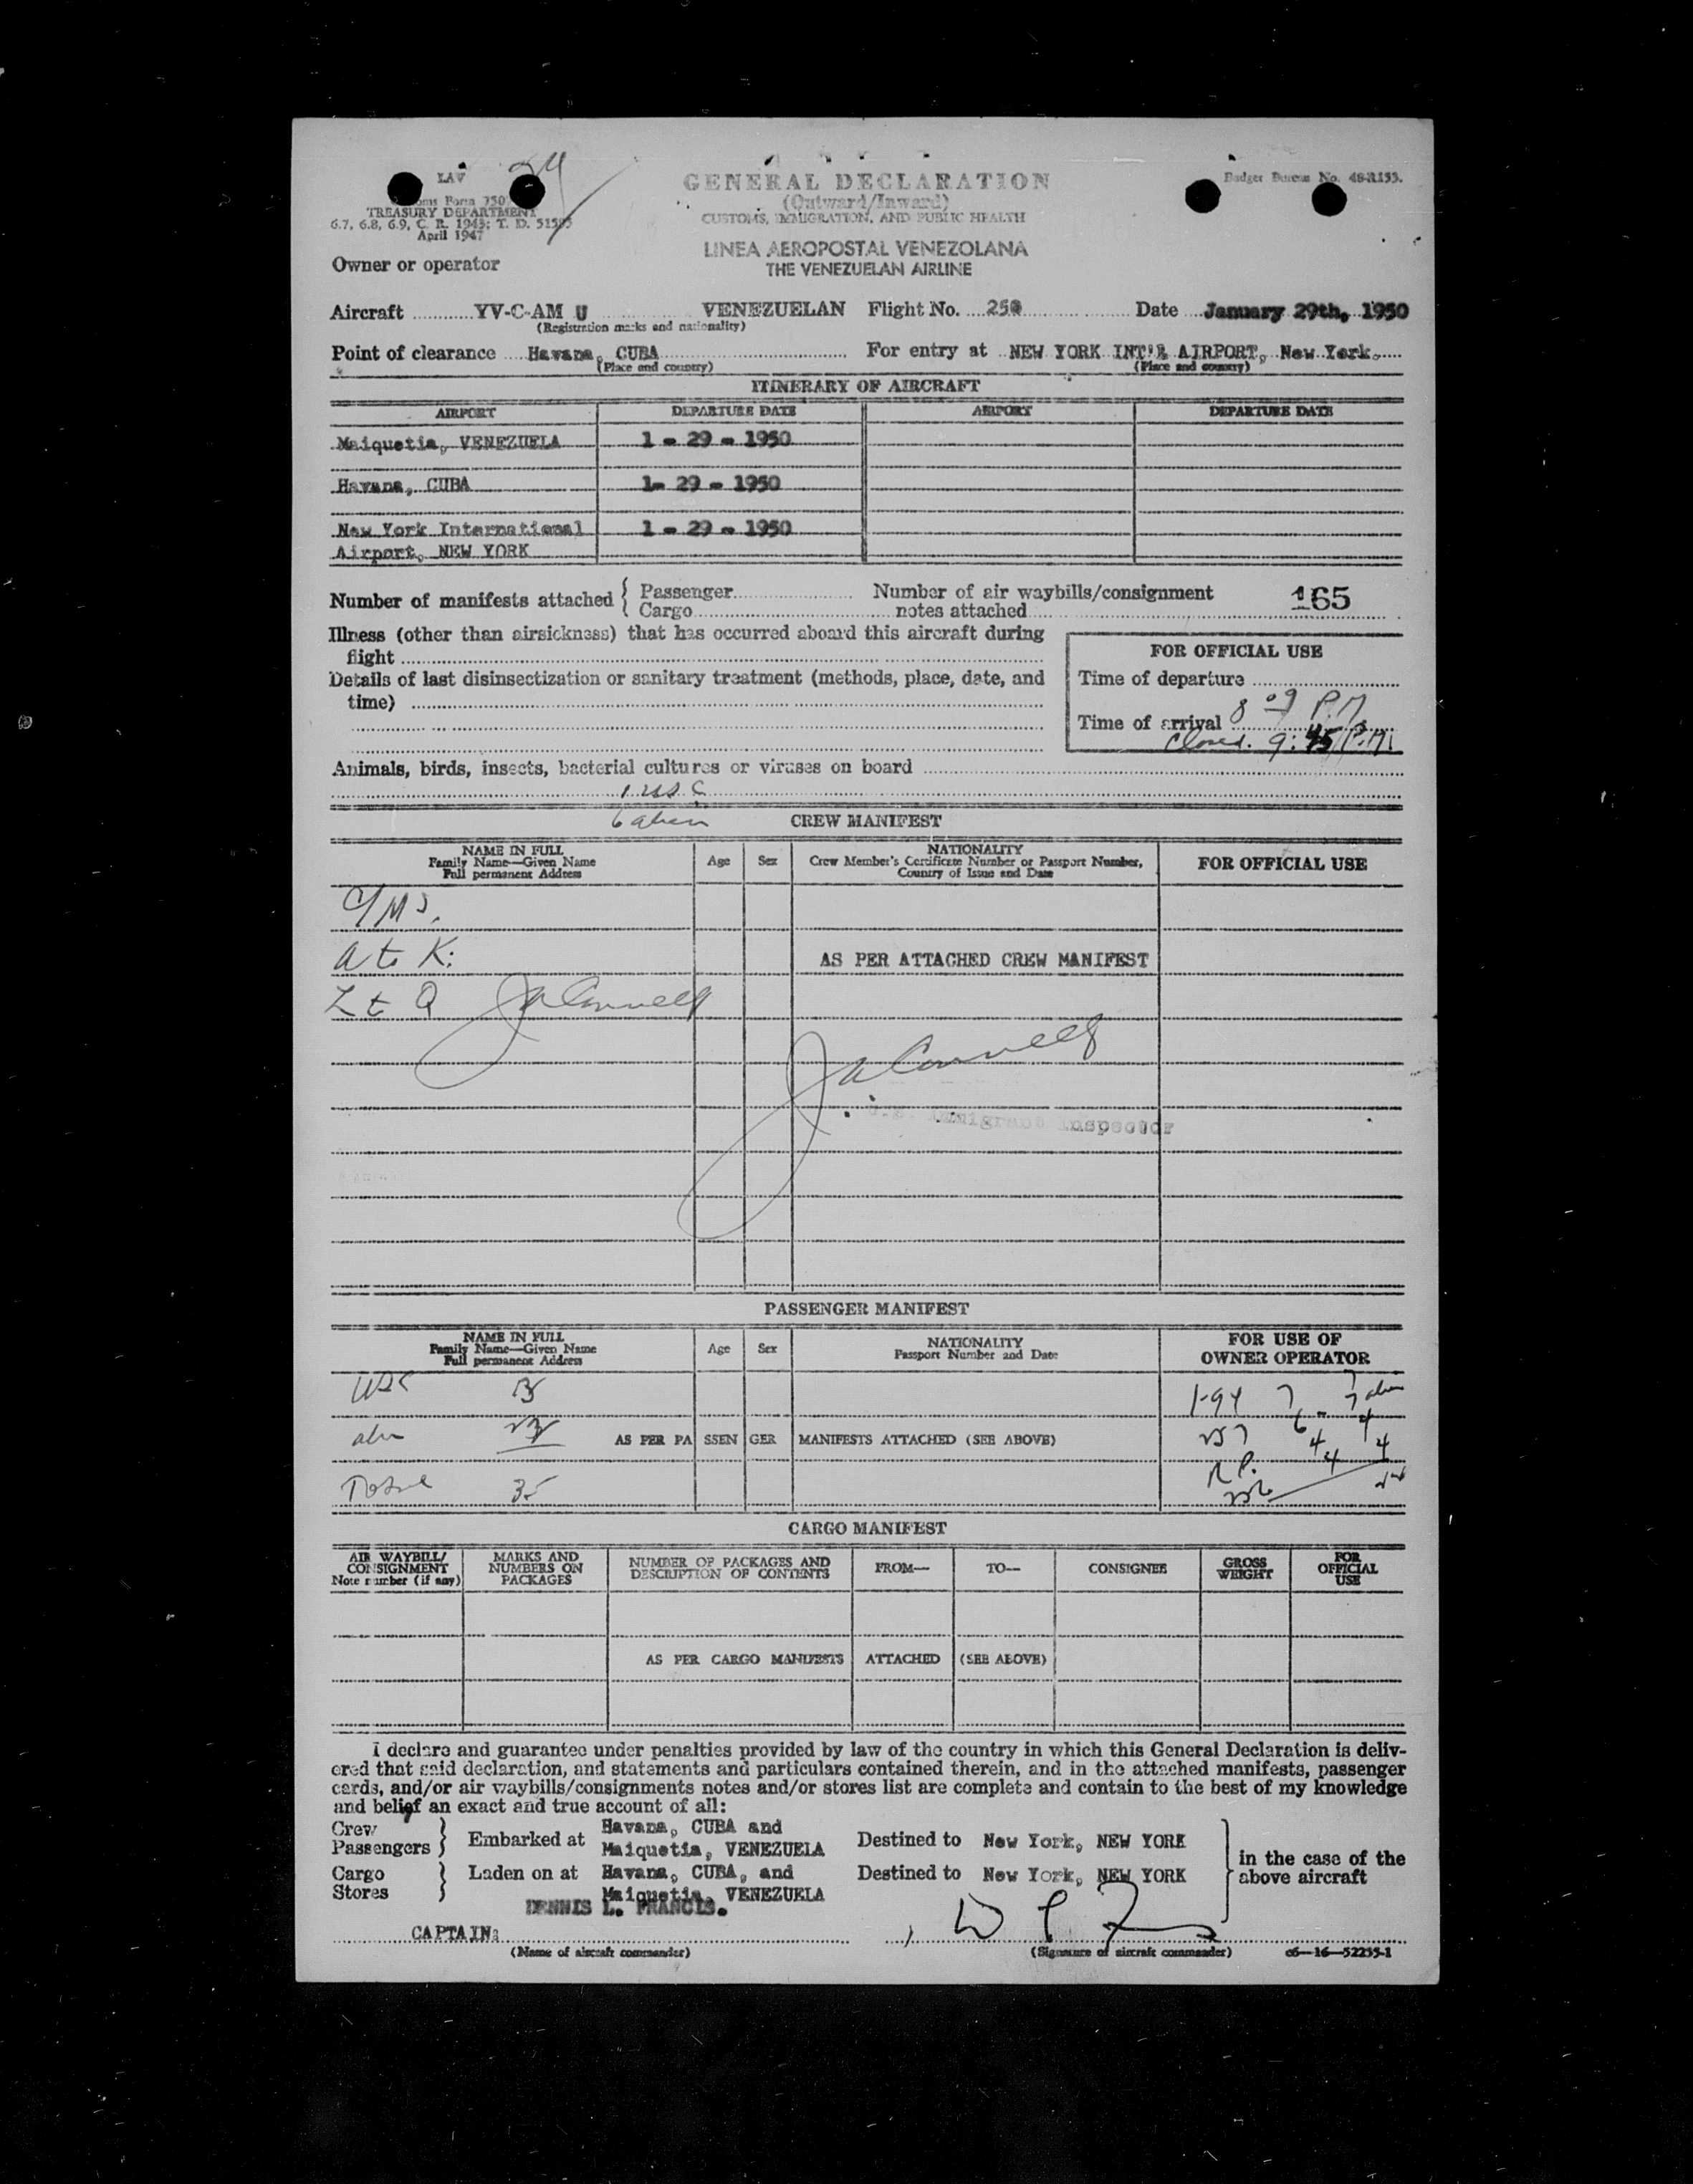 LAV
24
GENERAL DECLARATION
(Outward/Inward)
CUSTOMS, IMMIGRATION, AND PUBLIC HEALTH
Budget Bureau No. 48-R155.
Form 750
TREASURY DEPARTMENT
6.7, 6.8, 6.9, C. R. 1943; T. D. 51505
April 1947
LINEA AEROPOSTAL VENEZOLANA
THE VENEZUELAN AIRLINE
Owner or operator
Aircraft YV-C-AM U VENEZUELAN Flight No. 250 Date January 29th, 1950
(Registration marks and nationality)
Point of clearance Havana, CUBA For entry at NEW YORK INT'L AIRPORT, New York.
(Place and country) (Place and country)
ITINERARY OF AIRCRAFT
AIRPORT DEPARTURE DATE AIRPORT DEPARTURE DATE
Maiquetia, VENEZUELA 1 - 29 - 1950
Havana, CUBA 1- 29 - 1950
New York International 1 - 29 - 1950
Airport, NEW YORK
Number of manifests attached { Passenger
Cargo
Number of air waybills/consignment
notes attached
165
Illness (other than airsickness) that has occurred aboard this aircraft during
flight
Details of last disinsectization or sanitary treatment (methods, place, date, and
time)
FOR OFFICIAL USE
Time of departure
Time of arrival 8 09 PM
Closed. 9:45 P.M.
Animals, birds, insects, bacterial cultures or viruses on board
1 USC
6 alien
CREW MANIFEST
NAME IN FULL
Family Name—Given Name
Full permanent Address
Age Sex
NATIONALITY
Crew Member's Certificate Number or Passport Number,
Country of Issue and Date
FOR OFFICIAL USE
A to K.
AS PER ATTACHED CREW MANIFEST
L to Q JaConnell
JaConnell
U.S. Immigrant Inspector
PASSENGER MANIFEST
NAME IN FULL
Family Name—Given Name
Full permanent Address
Age Sex
NATIONALITY
Passport Number and Date
FOR USE OF
OWNER OPERATOR
USC
I-94 7 7 alien
alien
AS PER PASSENGER MANIFESTS ATTACHED (SEE ABOVE)
257 6 - 4
4 4
R.P. 4
Total 35
CARGO MANIFEST
AIR WAYBILL/
CONSIGNMENT
Note number (if any)
MARKS AND
NUMBERS ON
PACKAGES
NUMBER OF PACKAGES AND
DESCRIPTION OF CONTENTS
FROM— TO— CONSIGNEE
GROSS
WEIGHT
FOR
OFFICIAL
USE
AS PER CARGO MANIFESTS ATTACHED (SEE ABOVE)
I declare and guarantee under penalties provided by law of the country in which this General Declaration is deliv-
ered that said declaration, and statements and particulars contained therein, and in the attached manifests, passenger
cards, and/or air waybills/consignments notes and/or stores list are complete and contain to the best of my knowledge
and belief an exact and true account of all:
Crew
Passengers } Embarked at Havana, CUBA and
Maiquetia, VENEZUELA Destined to New York, NEW YORK
Cargo
Stores } Laden on at Havana, CUBA, and
Maiquetia, VENEZUELA Destined to New York, NEW YORK
in the case of the
above aircraft
DENNIS L. FRANCIS.
CAPTAIN:
(Name of aircraft commander) (Signature of aircraft commander) c6—16—52255-1